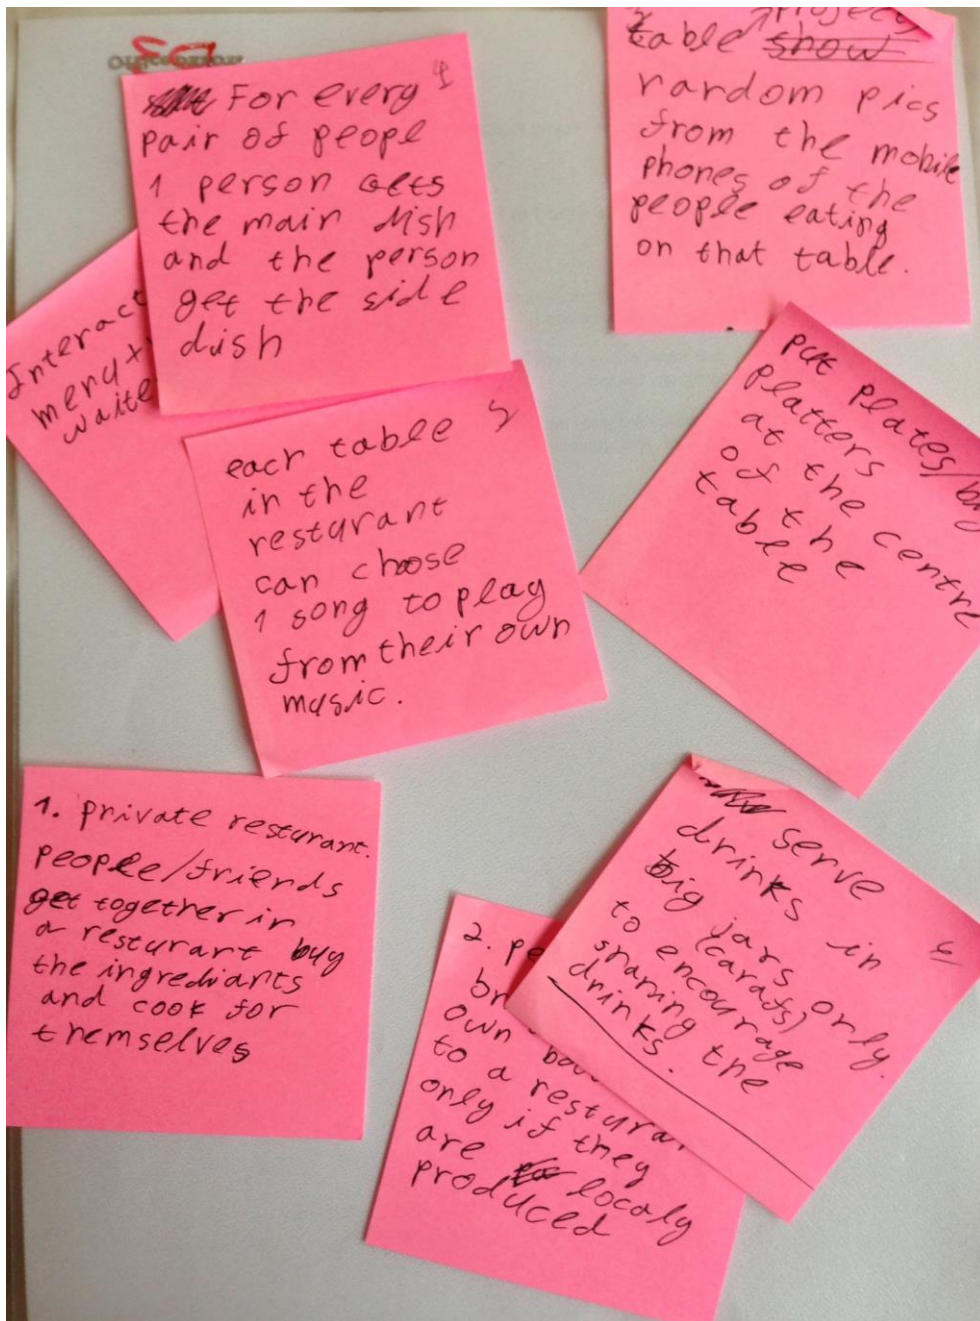 For every 4
pair of people
1 person gets
the main dish
and the person
get the side
dish
table project
random pics
from the mobile
phones of the
people eating
on that table.
Interact
menu +
waite
each table 5
in the
resturant
can choose
1 song to play
from their own
music.
put plates/big
platters
at the centre
of the
table
1. private resturant.
people/friends
get together in
a resturant buy
the ingrediants
and cook for
themselves
serve
drinks in
big jars only.
(carafs)
to encourage
sharing the
drinks.
2. pe
br
own
to a restura
only if they
are localy
produced